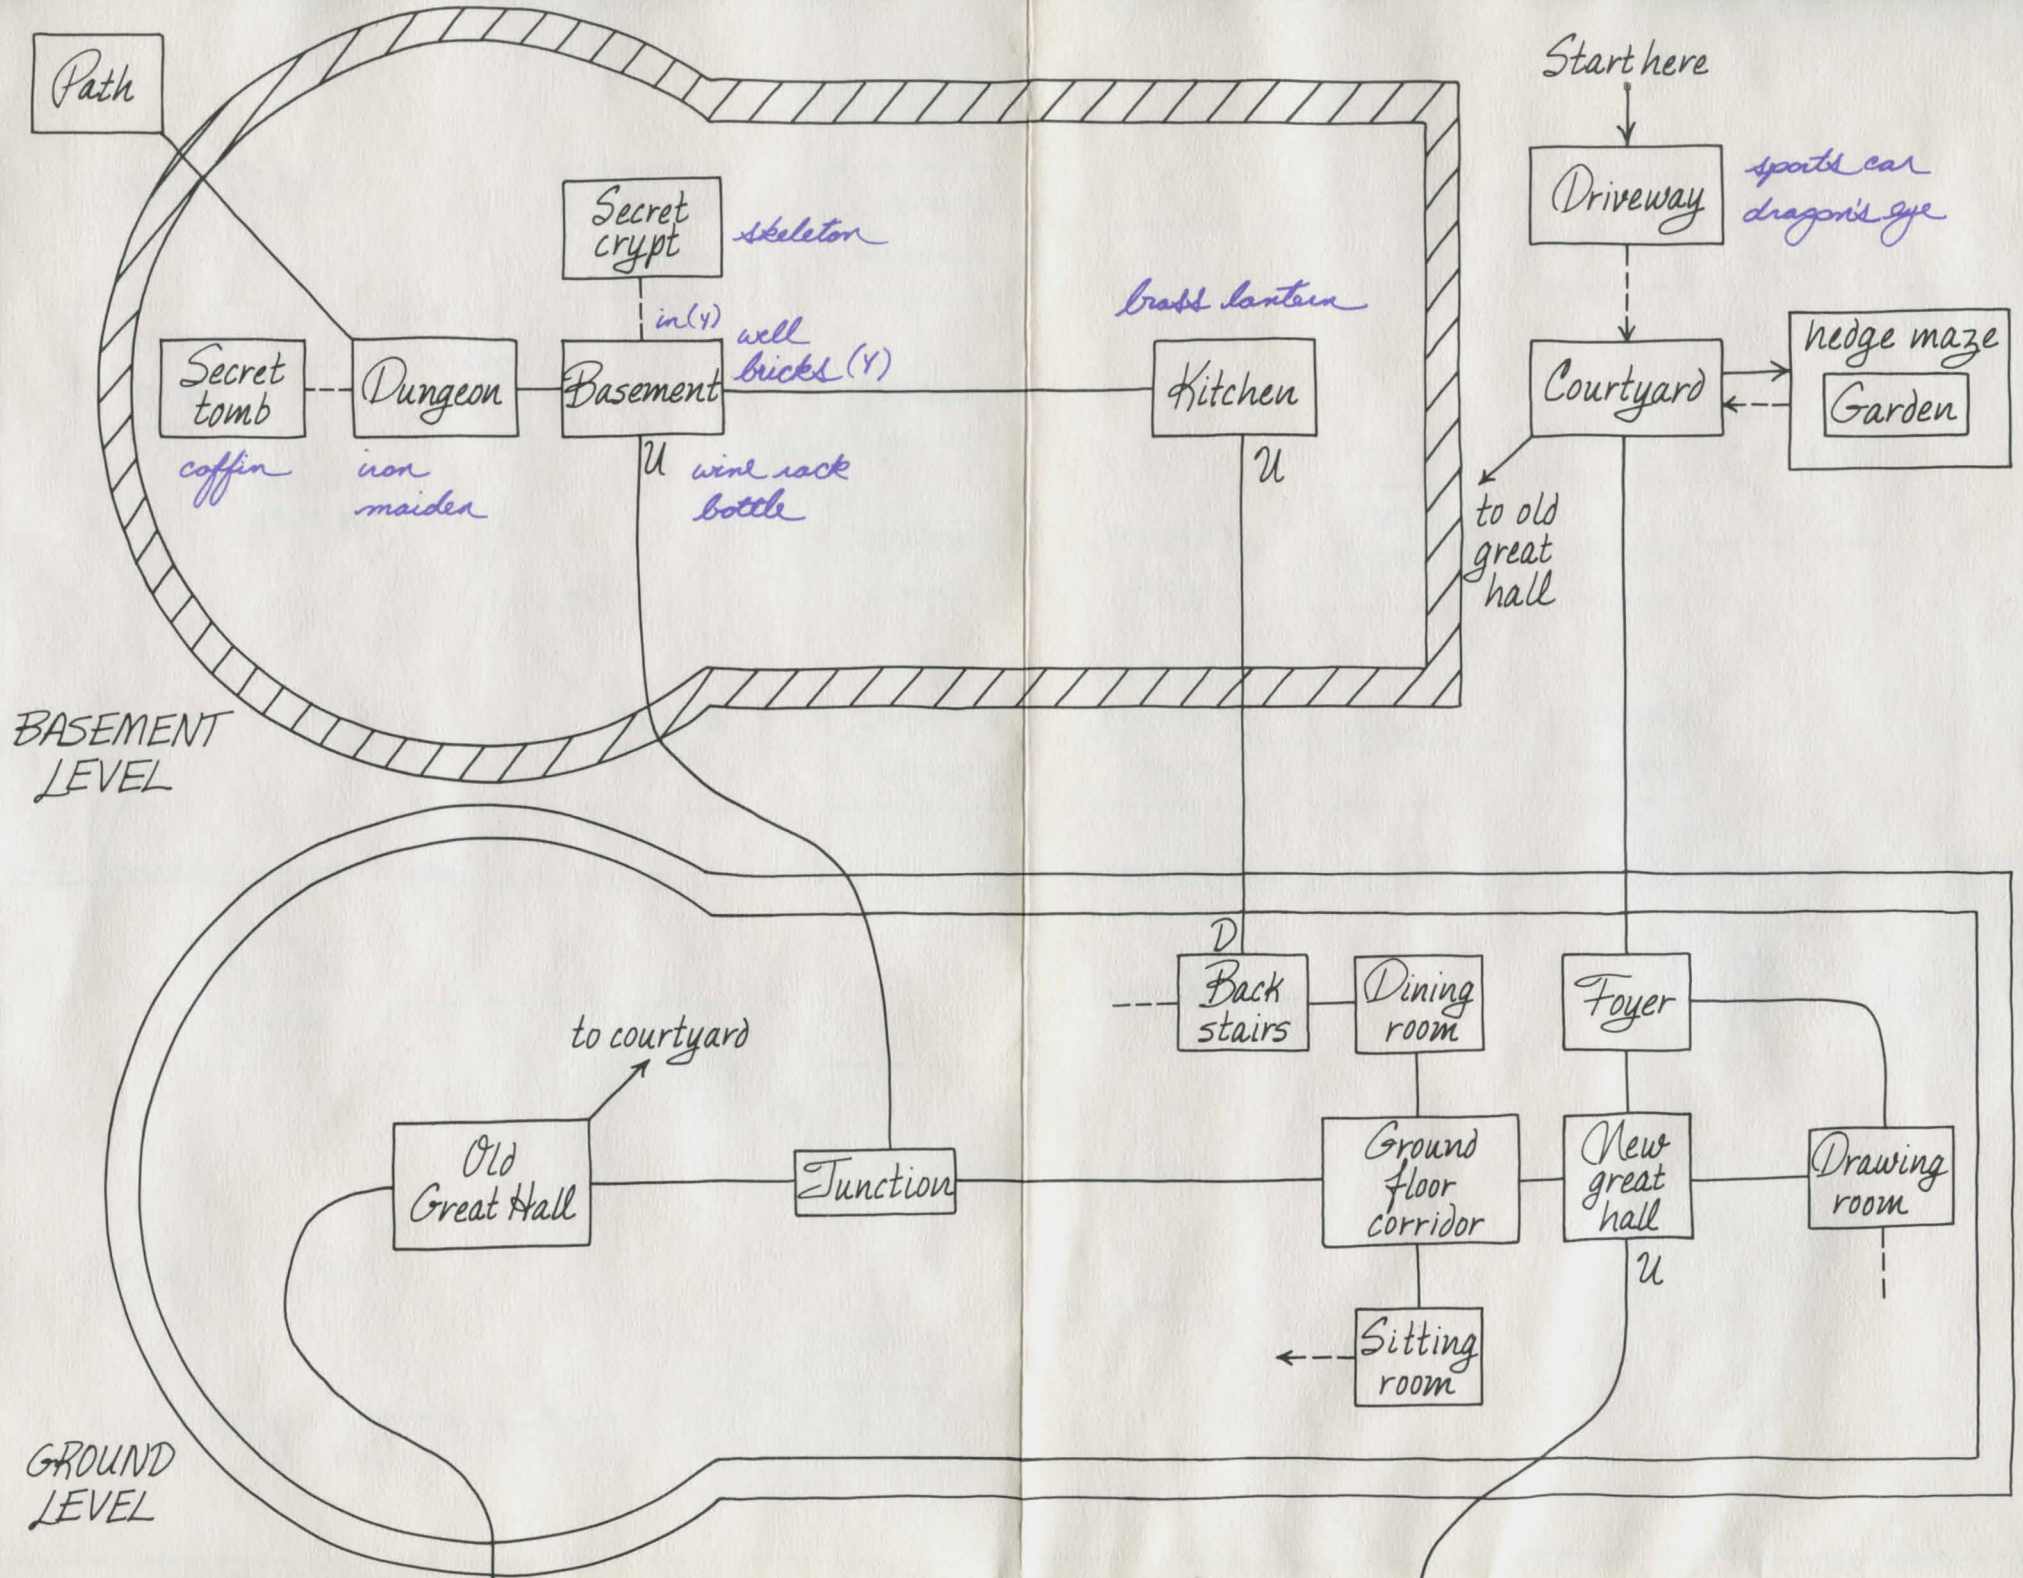 Path
Start here
Driveway
sports car
dragon's eye
Secret
crypt
skeleton
in(Y)
well
bricks (Y)
brass lantern
hedge maze
Garden
Secret
tomb
Dungeon
Basement
Kitchen
Courtyard
coffin
iron
maiden
U
wine rack
bottle
U
to old
great
hall
BASEMENT
LEVEL
D
Back
stairs
Dining
room
Foyer
to courtyard
Old
Great Hall
Junction
Ground
floor
corridor
New
great
hall
Drawing
room
U
Sitting
room
GROUND
LEVEL